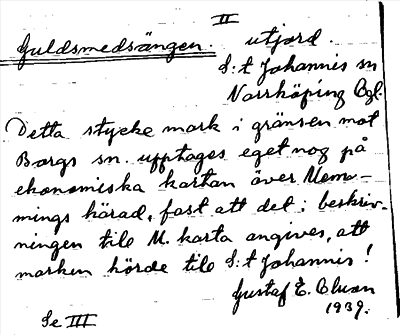 II
Guldsmedsängen. utjord.
S:t Johannis sn
Norrköping Ögl.
Detta stycke mark i gränsen mot
Borgs sn. upptages eget nog på
ekonomiska kartan över Mem-
mings härad, fast att det i beskriv-
ningen till M. karta angives, att
marken hörde till S:t Johannis!
Gustaf E.
1939.
Se III